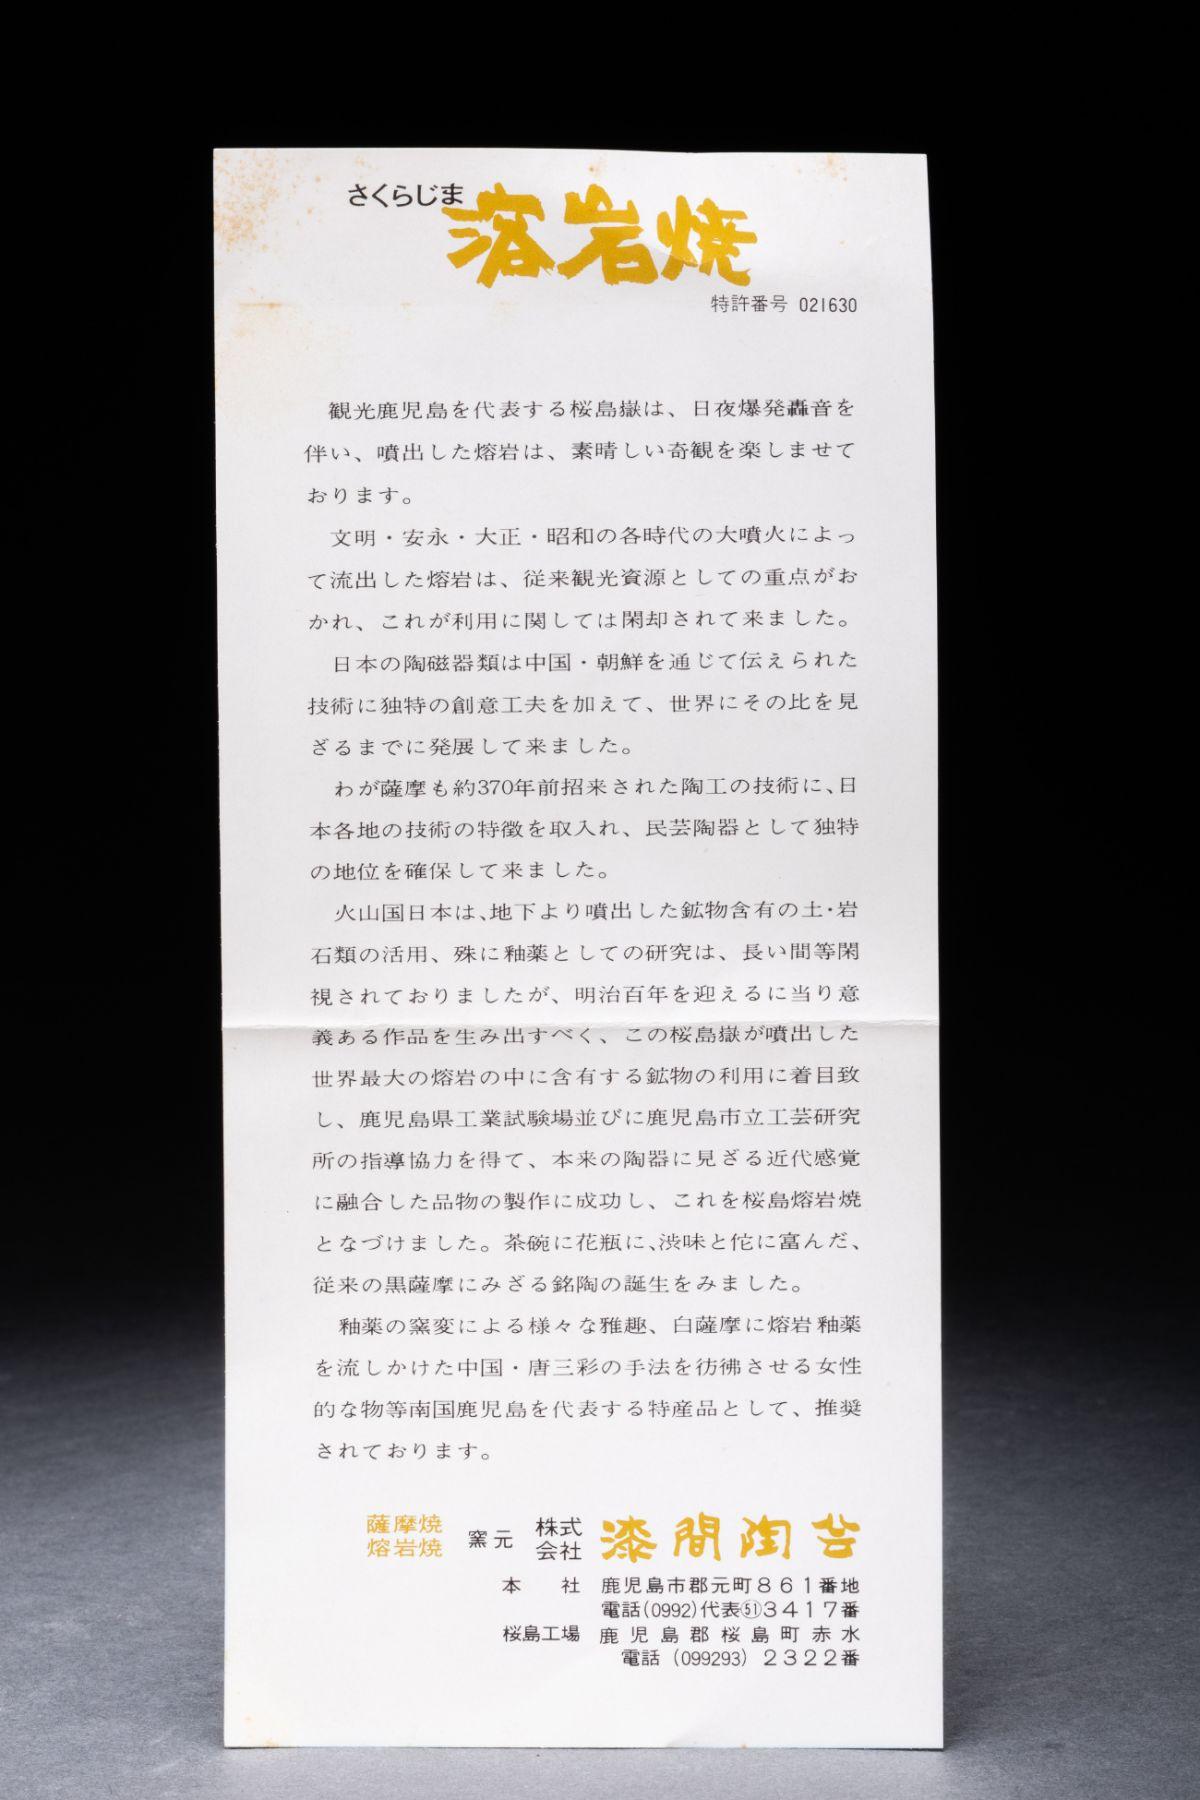 さくらじま
溶岩焼
特許番号 021630
観光鹿児島を代表する桜島嶽は、日夜爆発轟音を
伴い、噴出した熔岩は、素晴しい奇観を楽しませて
おります。
文明・安永・大正・昭和の各時代の大噴火によっ
て流出した熔岩は、従来観光資源としての重点がお
かれ、これが利用に関しては閑却されて来ました。
日本の陶磁器類は中国・朝鮮を通じて伝えられた
技術に独特の創意工夫を加えて、世界にその比を見
ざるまでに発展して来ました。
わが薩摩も約370年前招来された陶工の技術に、日
本各地の技術の特徴を取入れ、民芸陶器として独特
の地位を確保して来ました。
火山国日本は、地下より噴出した鉱物含有の土・岩
石類の活用、殊に釉薬としての研究は、長い間等閑
視されておりましたが、明治百年を迎えるに当り意
義ある作品を生み出すべく、この桜島嶽が噴出した
世界最大の熔岩の中に含有する鉱物の利用に着目致
し、鹿児島県工業試験場並びに鹿児島市立工芸研究
所の指導協力を得て、本来の陶器に見ざる近代感覚
に融合した品物の製作に成功し、これを桜島熔岩焼
となづけました。茶碗に花瓶に、渋味と佗に富んだ、
従来の黒薩摩にみざる銘陶の誕生をみました。
釉薬の窯変による様々な雅趣、白薩摩に熔岩釉薬
を流しかけた中国・唐三彩の手法を彷彿させる女性
的な物等南国鹿児島を代表する特産品として、推奨
されております。
薩摩焼
熔岩焼
窯元 株式会社 漆間陶苔
本 社 鹿児島市郡元町861番地
電話(0992)代表㊿3417番
桜島工場 鹿児島郡桜島町赤水
電話 (099293) 2322番